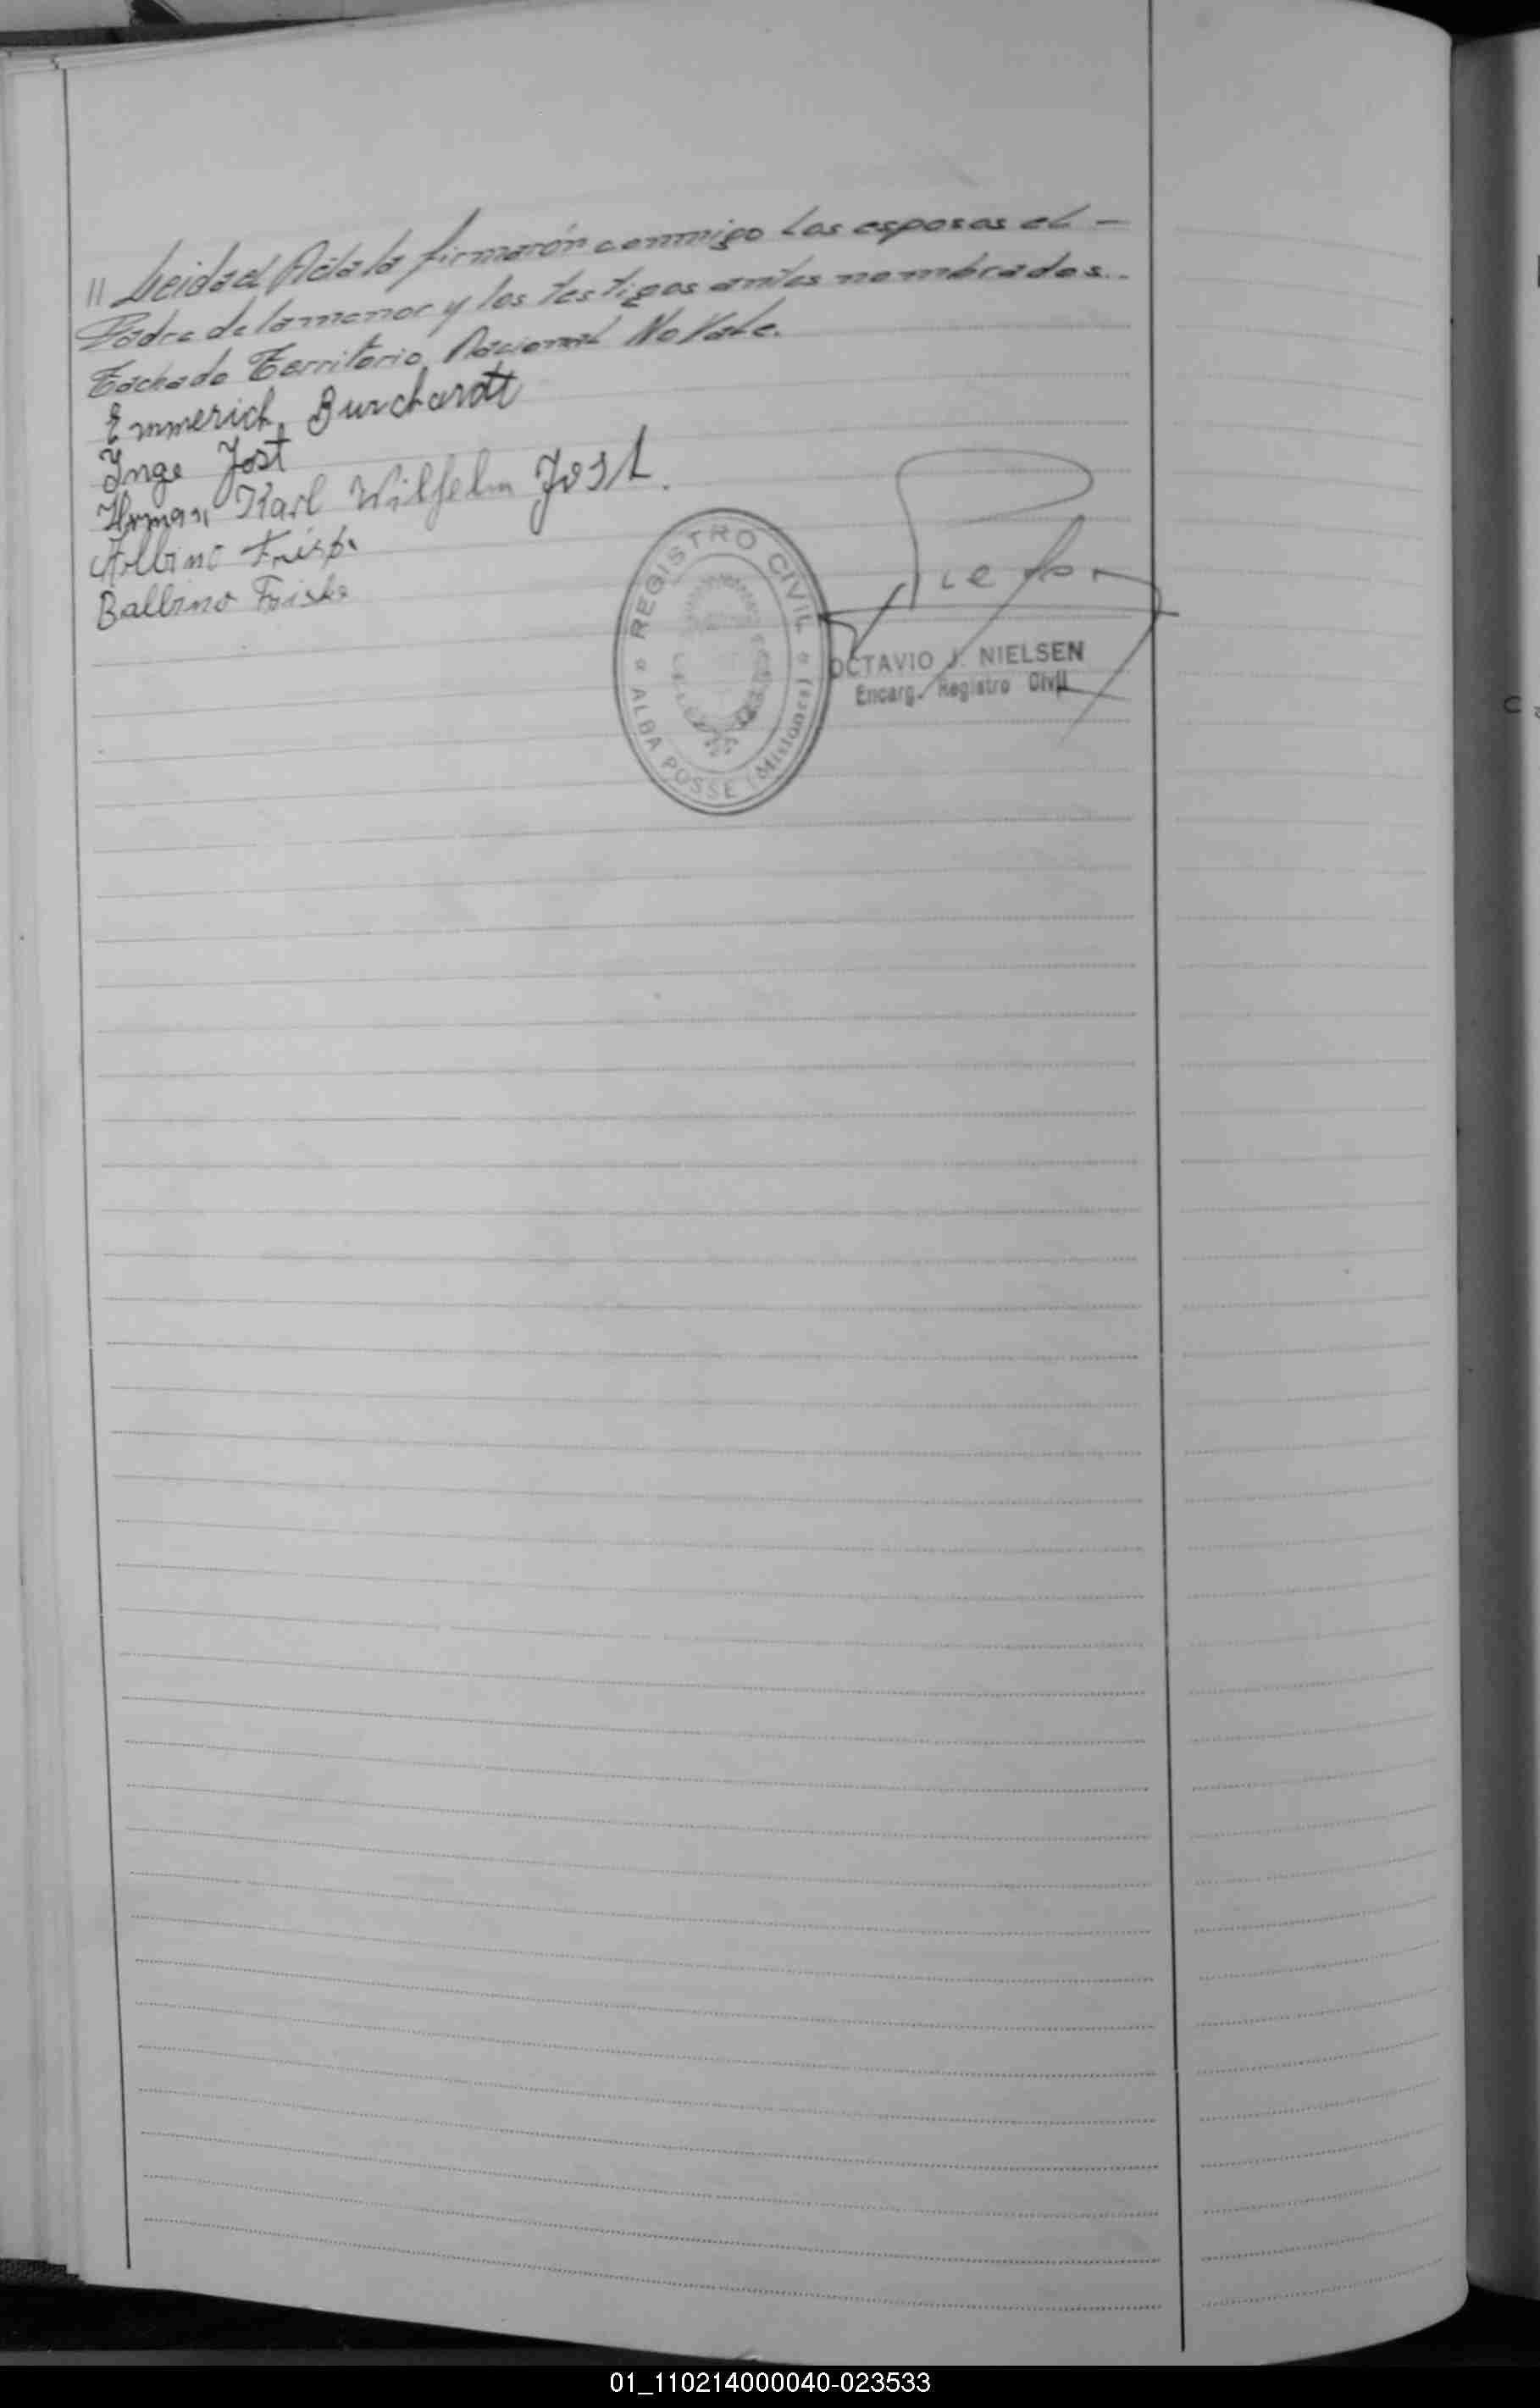 // Leida el Acta la firmarón conmigo los esposos el -
Padre de la menor y los testigos antes nombrados.-
Tachado Territorio Nacional No Vale.
Emmerich Burchardt
Inge Jost
Karl Wilhelm Jost.
Albino
Balbino Friske
REGISTRO CIVIL
ALBA POSSE (Misiones)
OCTAVIO J. NIELSEN
Encarg. Registro Civil
01_110214000040-023533